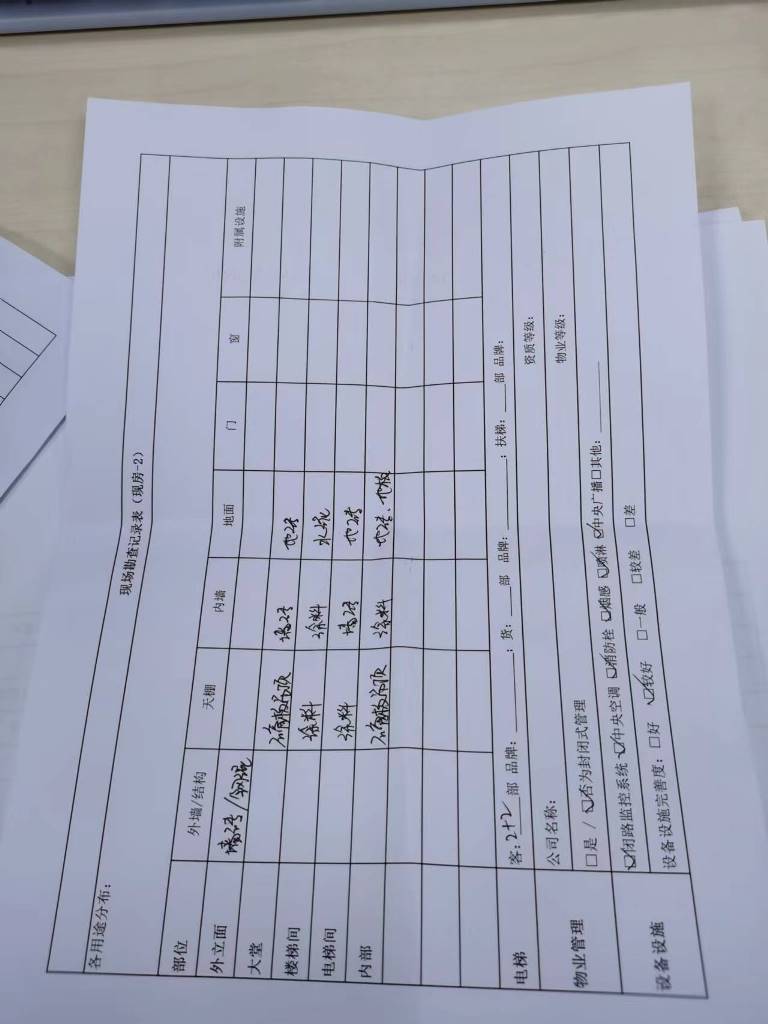 现场勘查记录表（现房-2）
各用途分布：
部位 外墙/结构 天棚 内墙 地面 门 窗 附属设施
外立面 墙砖/钢混
大堂 石膏板吊顶 墙砖 地砖
楼梯间 涂料 涂料 水泥
电梯间 涂料 墙砖 地砖
内部 石膏板吊顶 涂料 地砖、地板
电梯 客：2+2部 品牌：______；货：___部 品牌：______；扶梯：___部 品牌：
物业管理 公司名称： 资质等级：
□是 / ☑否为封闭式管理 物业等级：
设备设施 ☑闭路监控系统 ☑中央空调 ☑消防栓 ☑烟感 ☑喷淋 ☑中央广播□其他：______
设备设施完善度：□好 ☑较好 □一般 □较差 □差